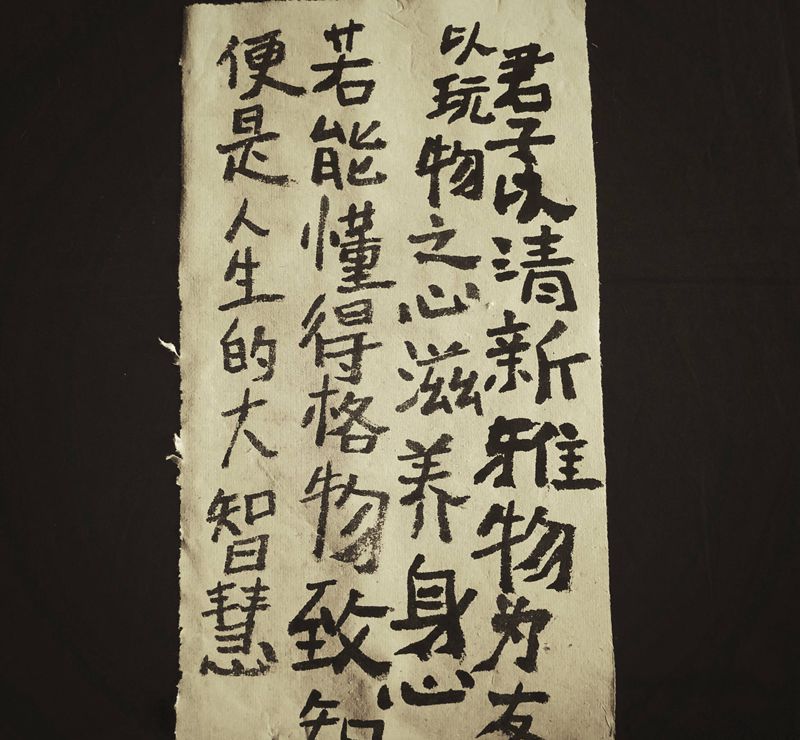 君子以清新雅物为友
以玩物之心滋养身心
若能懂得格物致知
便是人生的大智慧